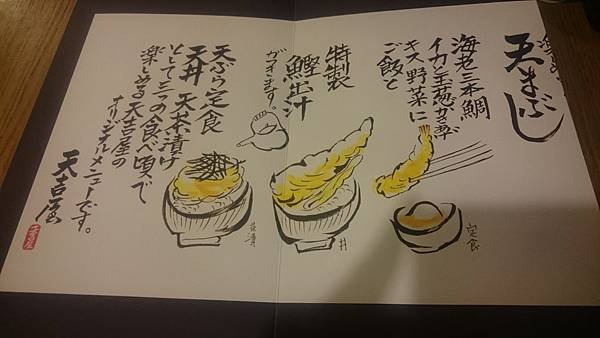 天まぶし
海老二本鯛
イカと玉葱かき揚
キス野菜に
ご飯と
特製
鰹出汁
がつきます。
天ぷら定食
天丼 天茶漬け
として三つの食べ頃で
楽しめる天吉屋の
オリジナルメニューです。
天吉屋
定食
丼
茶漬